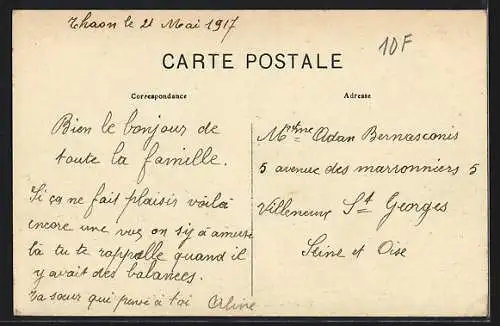 Thaon le 21 Mai 1917
10F
CARTE POSTALE
Correspondance
Adresse
Bien le bonjour de
toute la famille.
Si ça ne fait plaisir voilà
encore une vue, on s'y à amusé
là tu te rappelle quand il
y avait des balances.
ta sœur qui pense à toi
Mme Adan Bernasconis
5 avenue des marronniers 5
Villeneuve St Georges
Seine et Oise